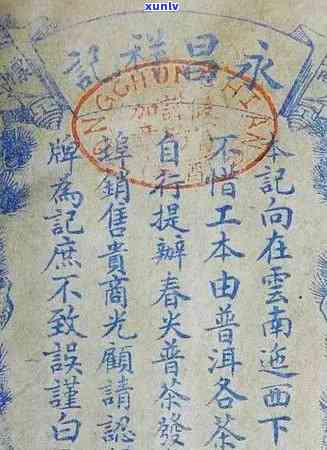 xunlv
www.xunlv.cn
永昌祥記
本記向在雲南迤西下
不惜工本由普洱各茶
自行提辦春尖普茶發
埠銷售貴商光顧請認
牌為記庶不致誤謹白